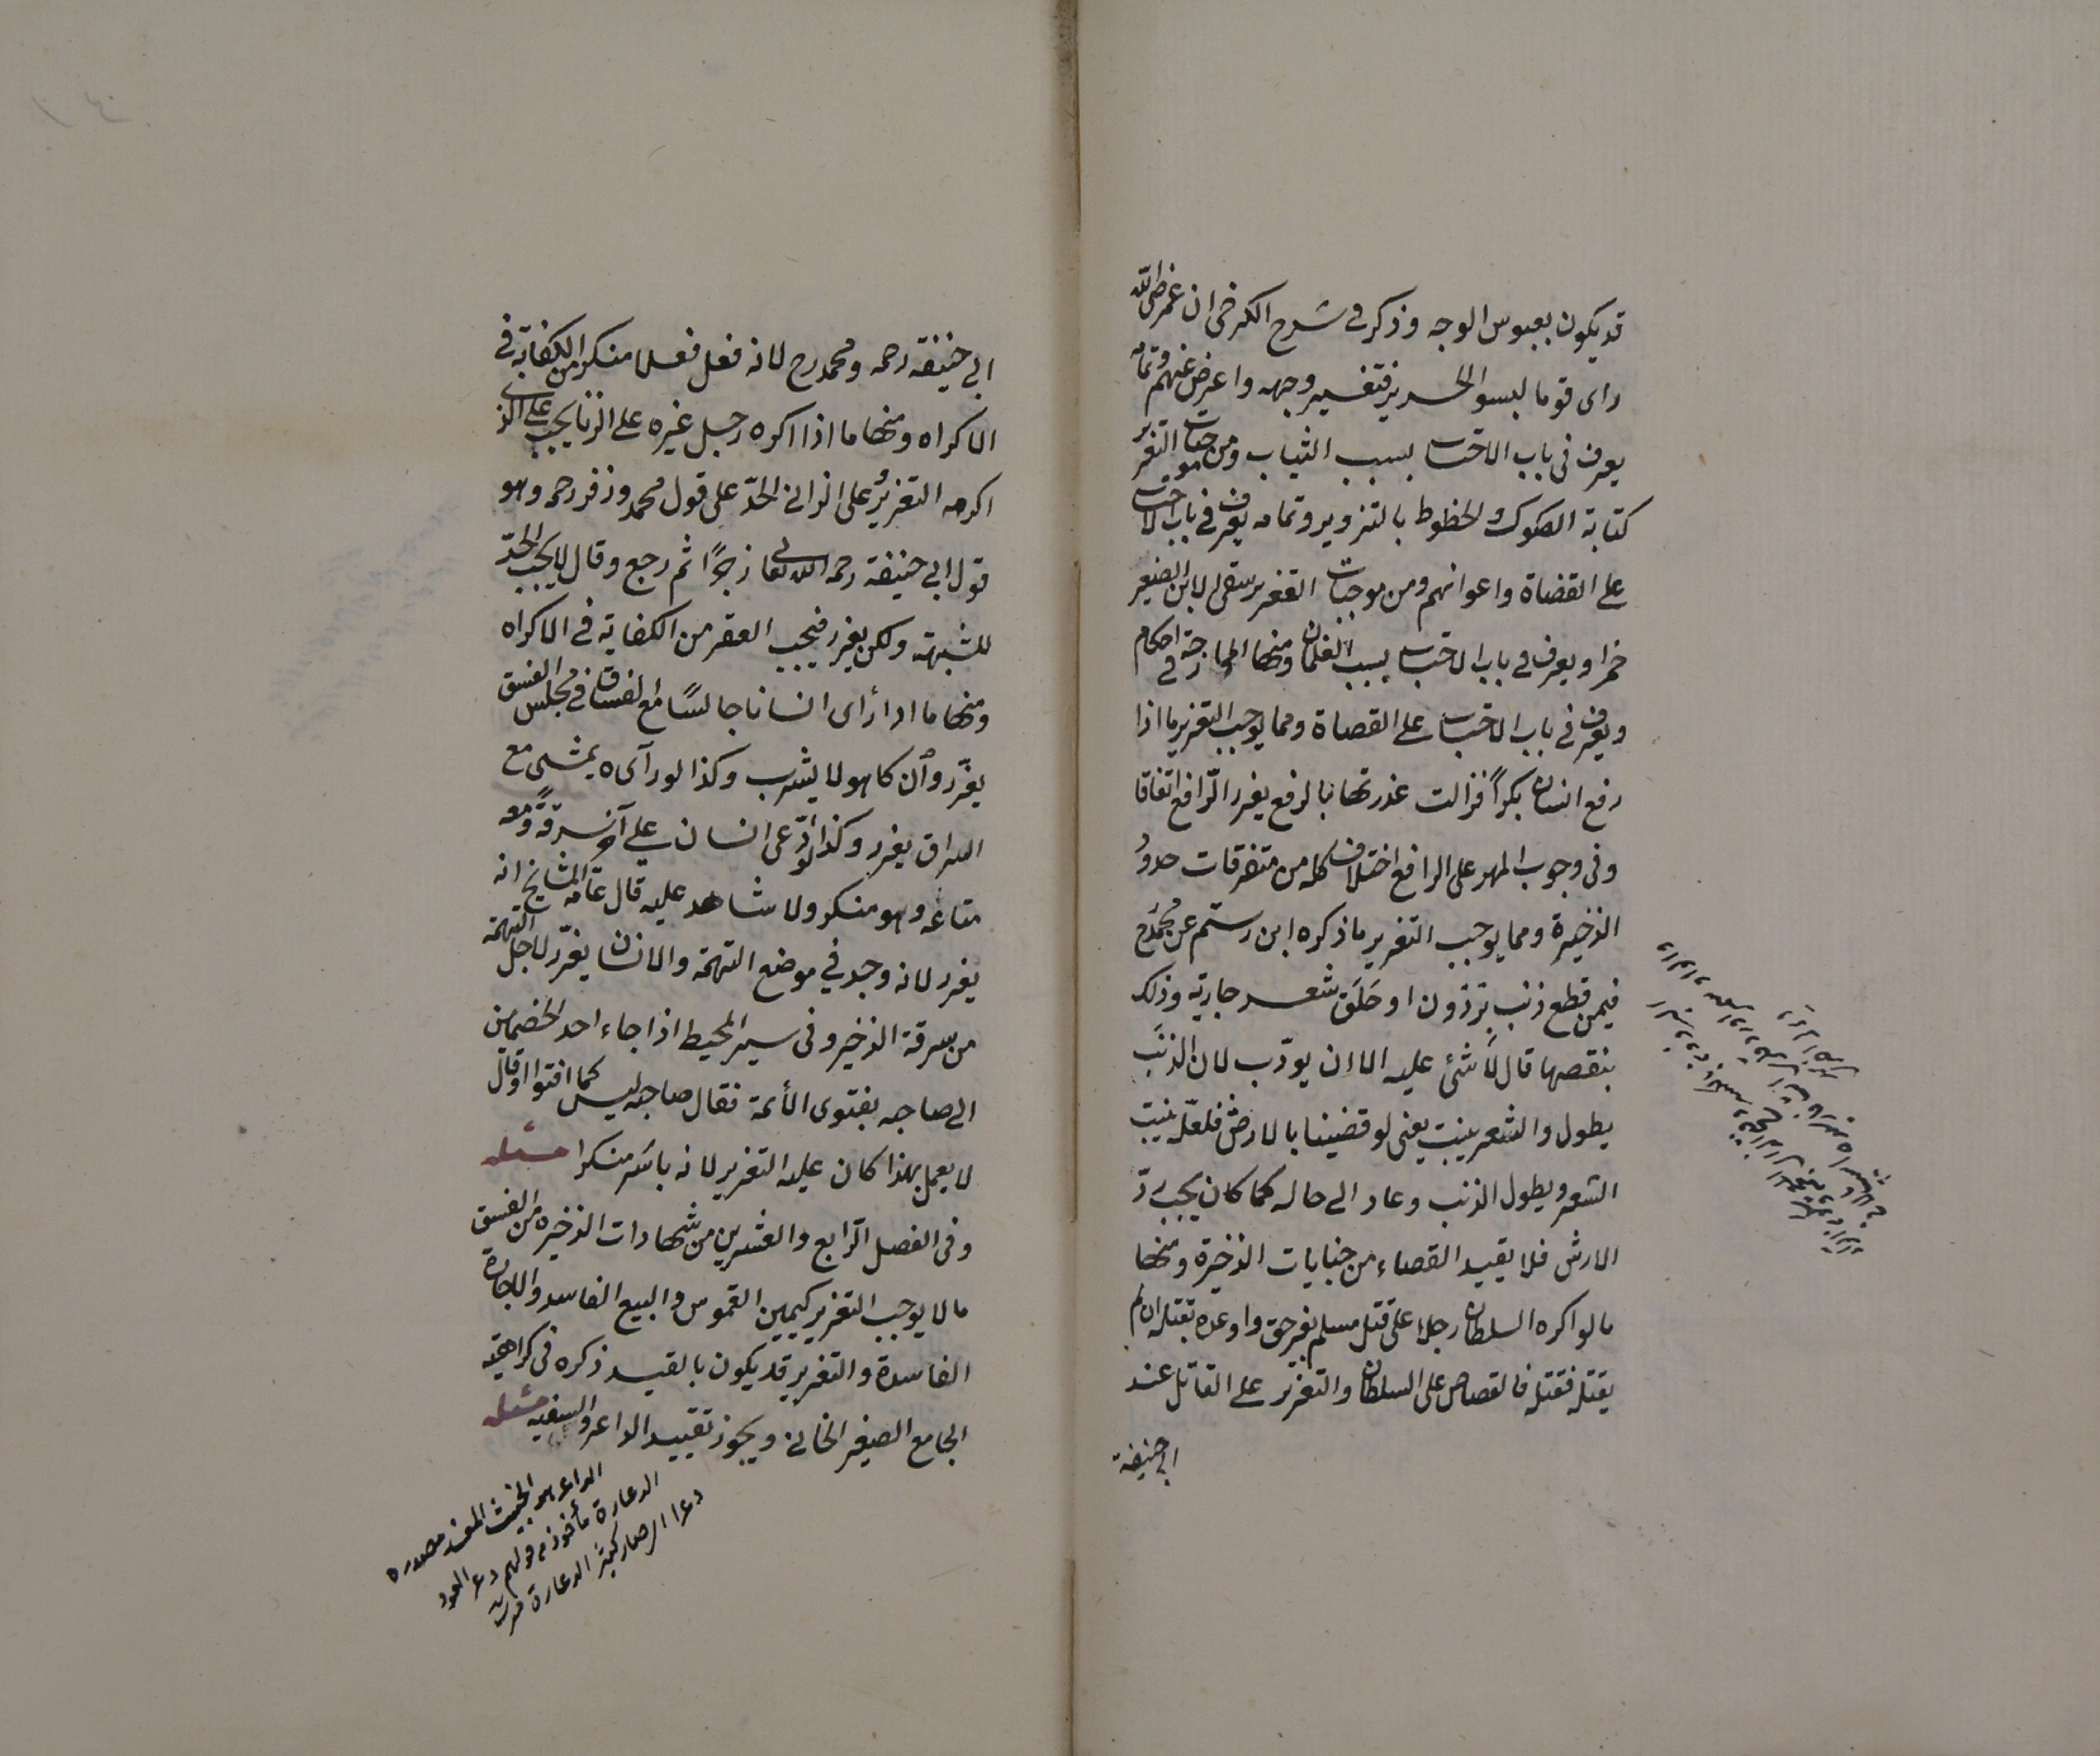 قد يكون بعبوس الوجه وذكر فى شرح الكرخى ان عمر رضى الله
راى قوما لبسوا الحرير فتغير وجهه واعرض عنهم وتمامه
يعرف فى باب الاحتساب بسبب الثياب ومن موجبات التعزير
كتابة الصكوك والخطوط بالتزوير وتمامه يعرف فى باب الاحتساب
على القضاة واعوانهم ومن موجبات التعزير سقى لابن الصغير
خمرا ويعرف فى باب الاحتساب بسبب الغلمان ومنها المازجة فى احكام
ويعرف فى باب الاحتساب على القضاة ومما يوجب التعزير ما اذا
رفع انسان بكراً فزالت عذرتها بالرفع يعزر الرّافع اتفاقا
وفى وجوب المهر على الرافع اختلاف كله من متفرقات حدود
الذخيرة ومما يوجب التعزير ما ذكره ابن رستم عن محمد رح
فيمن قطع ذنب برذون او حَلَق شعر جارية وذلك
بنقصها قال لا شئ عليه الا ان يودّب لان الذنَب
يطول والشعر ينبت يعنى لو قضينا بالارش فلعلّه ينبت
الشعر ويطول الذنب وعاد الى حاله كما كان يجب ردّ
الارش فلا يقيد القضاء من جنايات الذخيرة ومنها
ما لو اكره السلطان رجلا على قتل مسلم بغير حق واوعده بقتله ان لم
يقتله فقتله فالقصاص على السلطان والتعزير على القاتل عند
ابى حنيفة
ابى حنيفة رحمه ومحمد رح لانه فعل فعلا منكرا من الكفاية فى
الاكراه ومنها ما اذا اكره رجل غيره على الزنا يجب على الذى
اكرهه التعزيرُ وعلى الزانى الحدّ على قول محمد وزفر رحمه وهو
قول ابى حنيفة رحمه الله تعالى زجرًا ثم رجع وقال لا يجب الحدّ
للشبهة ولكن يعزر فيجب العقر من الكفاية فى الاكراه
ومنها ما اذا رأى انسانا جالسًا مع الفساق فى مجلس الفسق
يعزّر وان كان هو لا يشرب وكذا لو رآى ه يمشى مع
السراق يعزر وكذا لو ادّعى انسان على آخر سرقةً ومعه
متاعه وهو منكر ولا شاهد عليه قال عامّة المشايخ انه
يعزر لانه وجد فى موضع التهمة والانسان يعزّر لاجل التهمة
من سرقة الذخير وفى سير المحيط اذا جاء احد الخصمين
الى صاحبه بفتوى الأئمة فقال صاحبه ليس كما افتوا او قال
لا يعمل بهذا كان عليه التعزير لانه باشر منكرا مسئله
وفى الفصل الرّابع والعشرين من شهادات الذخيره من الفسق
ما لا يوجب التعزير كيمين الغموس والبيع الفاسد والاجارة
الفاسدة والتعزير قد يكون بالقيد ذكره فى كراهية
الجامع الصغير الخانى ويجوز تقييد الداعر والسفيه مسئله
الداعر هو الخبيث المفسد مصدره
الدعارة مأخوذ من قولهم دعر العود
دعرا اى صار كثير الدعارة